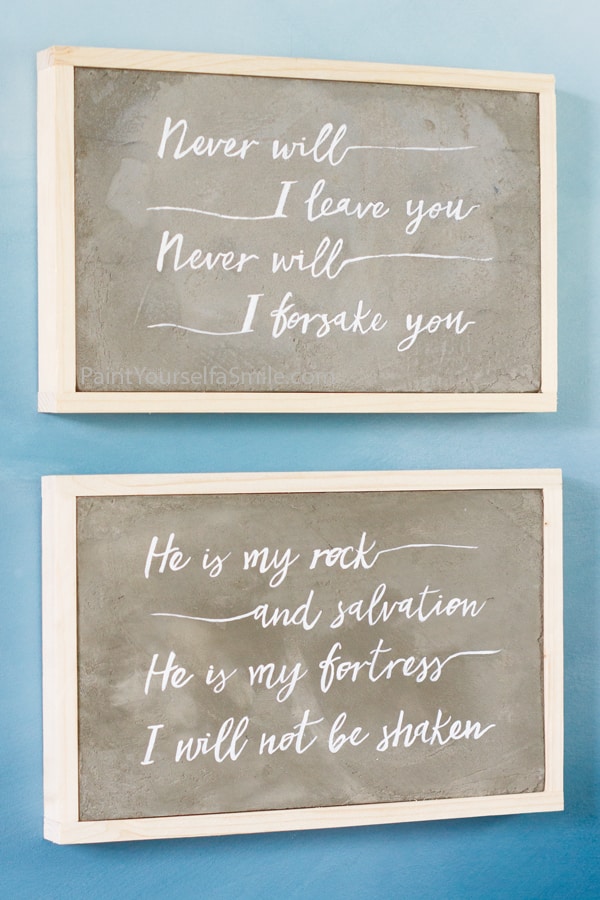 Never will
I leave you
Never will
I forsake you
PaintYourselfaSmile.com
He is my rock
and salvation
He is my fortress
I will not be shaken